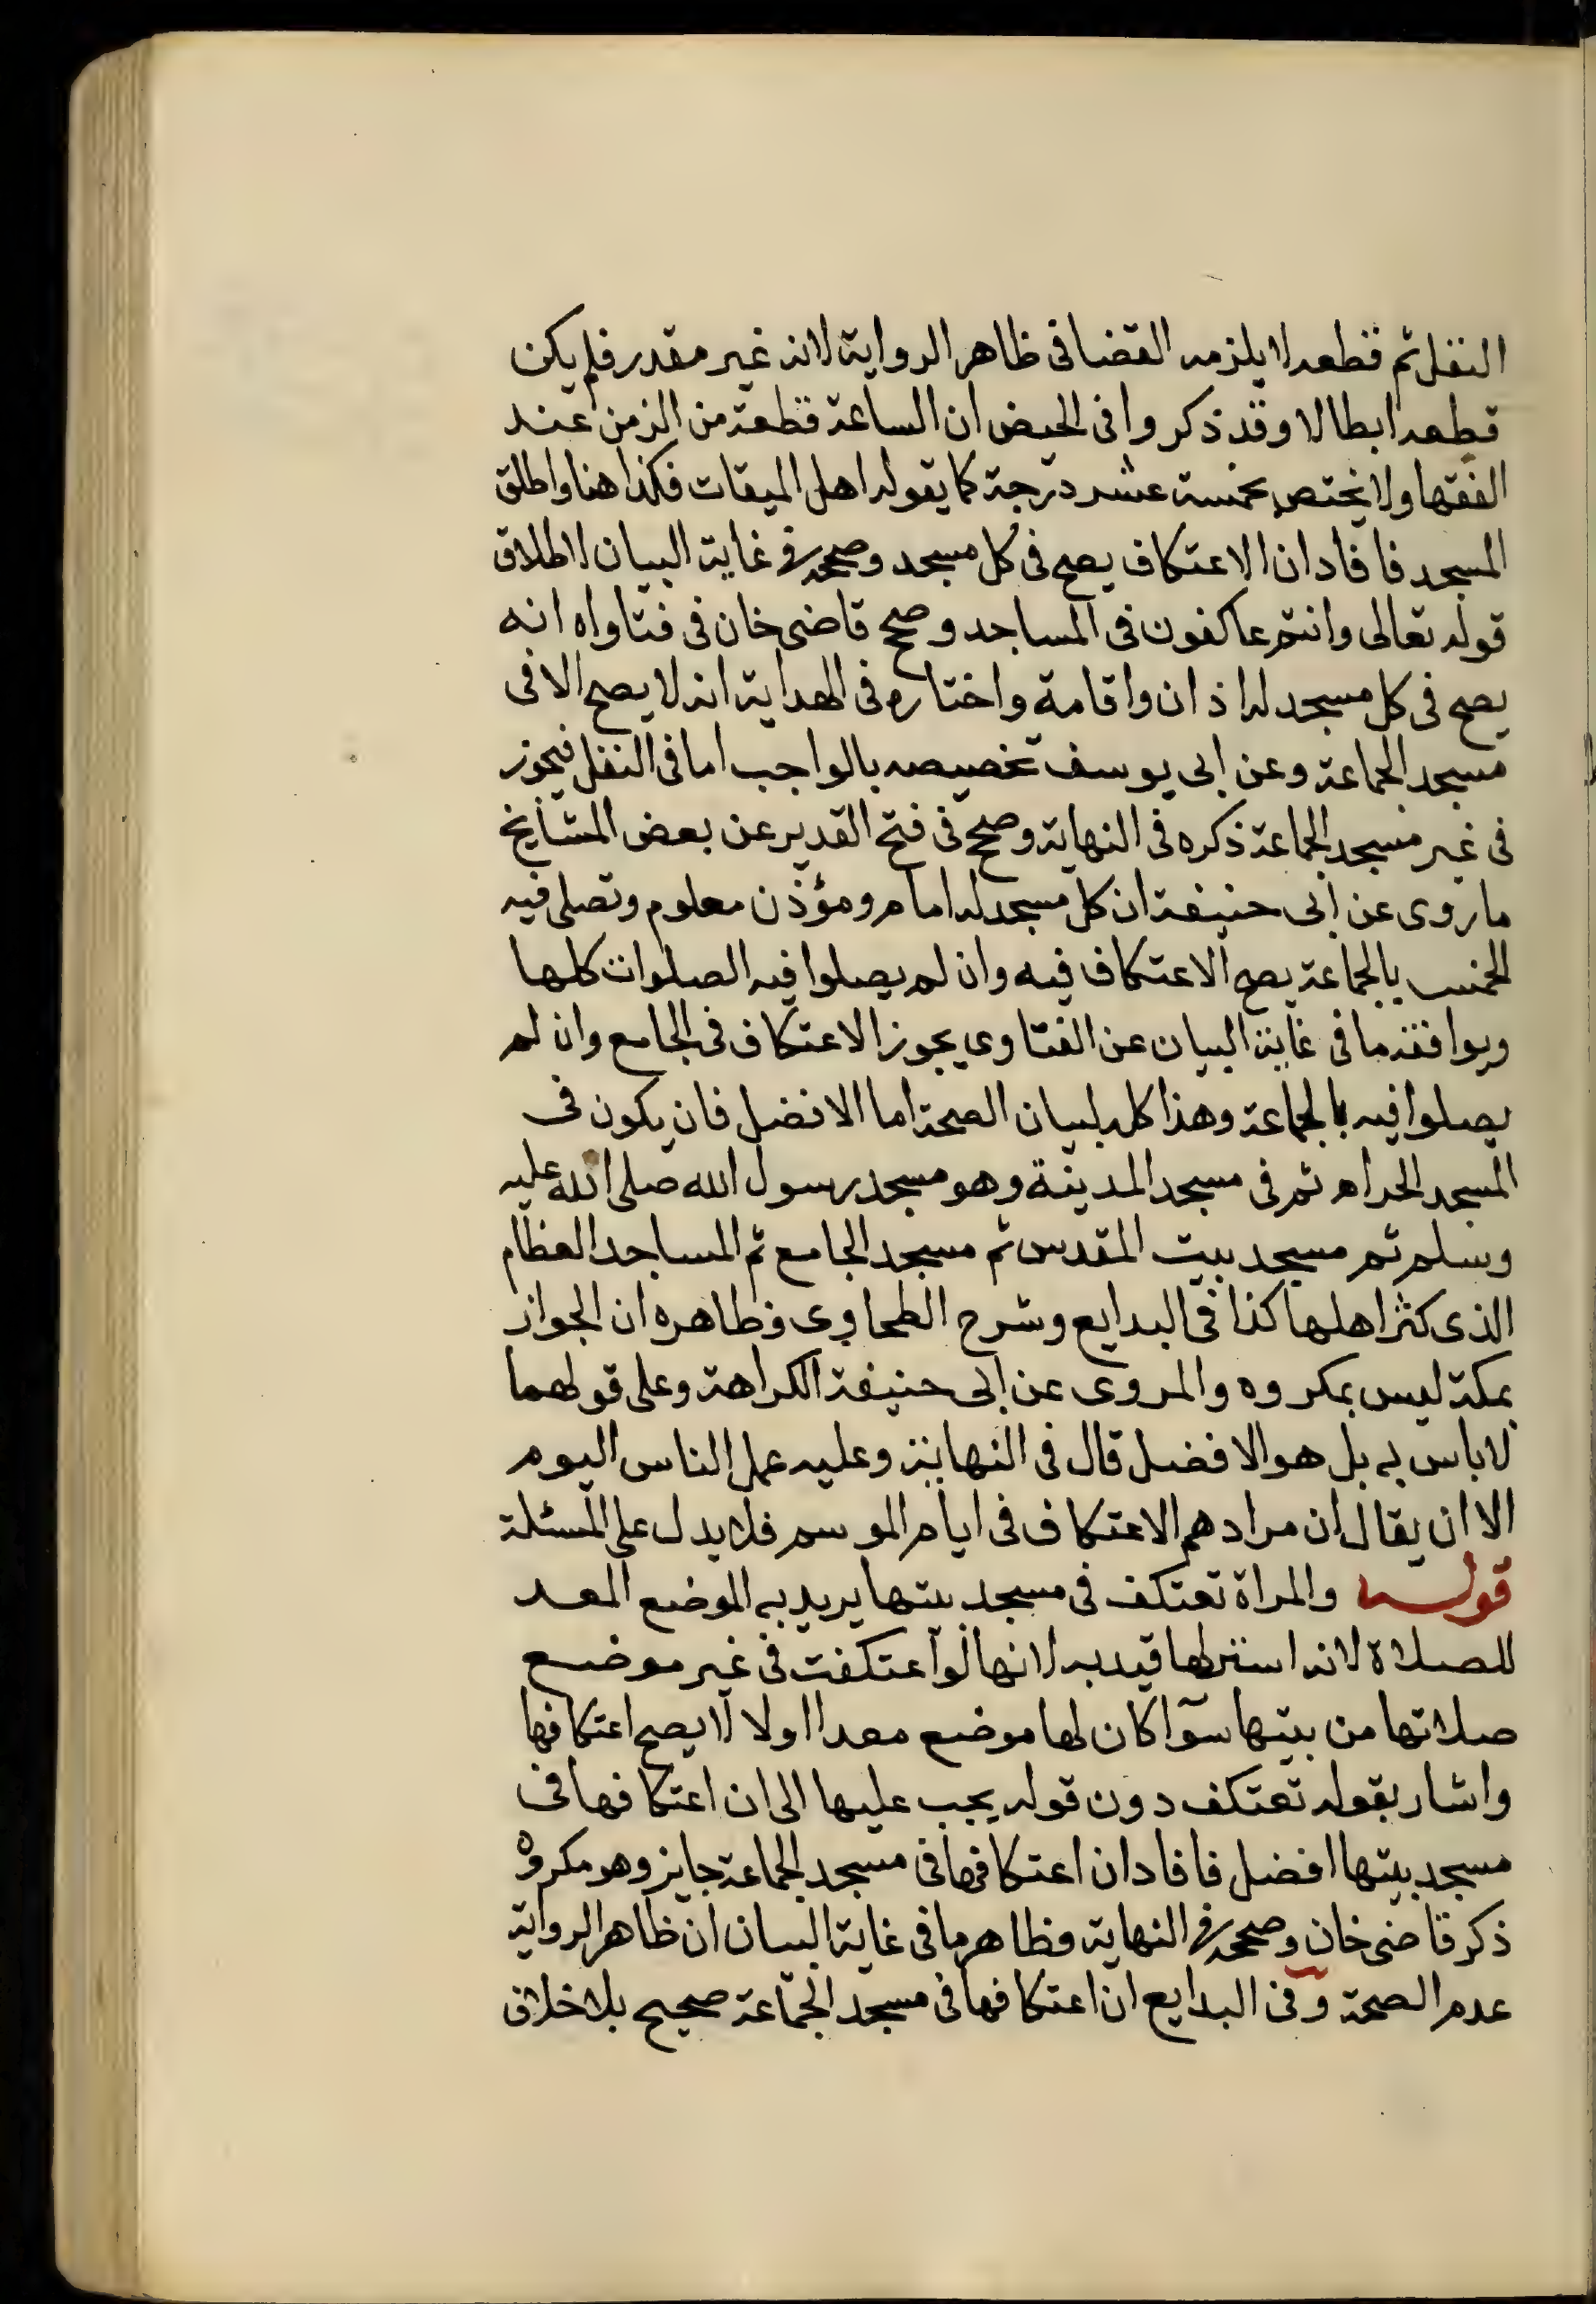 النفل ثم قطعه لا يلزمه القضا فى ظاهر الرواية لانه غير مقدر فلم يكن
قطعه ابطالا وقد ذكروا فى الحيض ان الساعة قطعة من الزمن عند
الفقها ولا يختص بخمسة عشر درجة كما يقوله اهل الميقات فكذا هنا واطلق
المسجد فافاد ان الاعتكاف يصح فى كل مسجد وصححه فى غاية البيان لاطلاق
قوله تعالى وانتم عاكفون فى المساجد وصحح قاضى خان فى فتاواه انه
يصح فى كل مسجد له اذان واقامة واختاره فى الهداية انه لا يصح الا فى
مسجد الجماعة وعن ابى يوسف تخصيصه بالواجب اما فى النفل فيجوز
فى غير مسجد الجماعة ذكره فى النهاية وصحح فى فتح القدير عن بعض المشايخ
ما روى عن ابى حنيفة ان كل مسجد له امام ومؤذن معلوم وتصلى فيه
الخمس بالجماعة يصح الاعتكاف فيه وان لم يصلوا فيه الصلوات كلها
ويوافقه ما فى غاية البيان عن الفتاوى يجوز الاعتكاف فى الجامع وان لم
يصلوا فيه بالجماعة وهذا كله لبيان الصحة اما الافضل فان يكون فى
المسجد الحرام ثم فى مسجد المدينة وهو مسجد رسول الله صلى الله عليه
وسلم ثم مسجد بيت المقدس ثم مسجد الجامع ثم المساجد العظام
الذى كثر اهلها كذا فى البدايع وشرح الطحاوى وظاهره ان الجواز
بمكة ليس بمكروه والمروى عن ابى حنيفة الكراهة وعلى قولهما
لا باس به بل هو الافضل قال فى النهاية وعليه عمل الناس اليوم
الا ان يقال ان مرادهم الاعتكاف فى ايام الموسم فلا يدل على المسئلة
قوله والمراة تعتكف فى مسجد بيتها يريد به الموضع المعد
للصلاة لانه استر لها قيد به لانها لو اعتكفت فى غير موضع
صلاتها من بيتها سوآ كان لها موضع معدا اولا لا يصح اعتكافها
واشار بقوله تعتكف دون قوله يجب عليها الى ان اعتكافها فى
مسجد بيتها افضل فافاد ان اعتكافها فى مسجد الجماعة جايز وهو مكروه
ذكر قاضى خان وصححه فى النهاية وظاهر ما فى غاية البيان ان ظاهر الرواية
عدم الصحة وفى البدايع ان اعتكافها فى مسجد الجماعة صحيح بلا خلاف